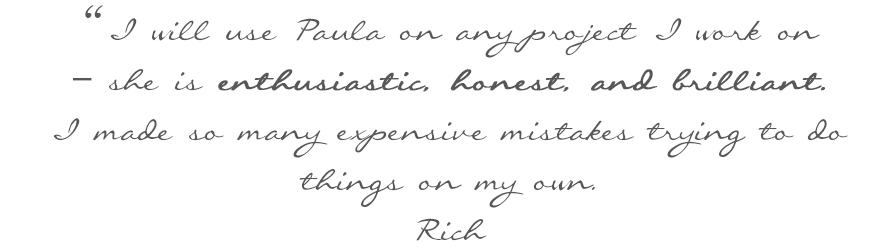 “ I will use Paula on any project I work on
– she is enthusiastic, honest, and brilliant.
I made so many expensive mistakes trying to do
things on my own.
Rich